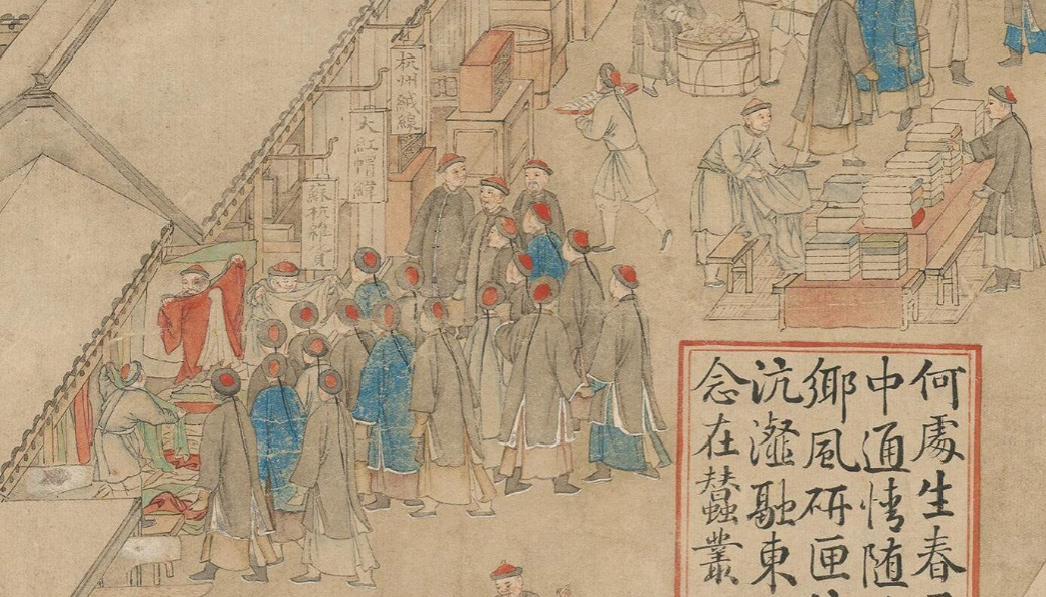 杭州絨線
大紅帽緯
蘇杭雜貨
何處生春
中通情随
鄉風研匣
沆瀣融東
念在蠶叢